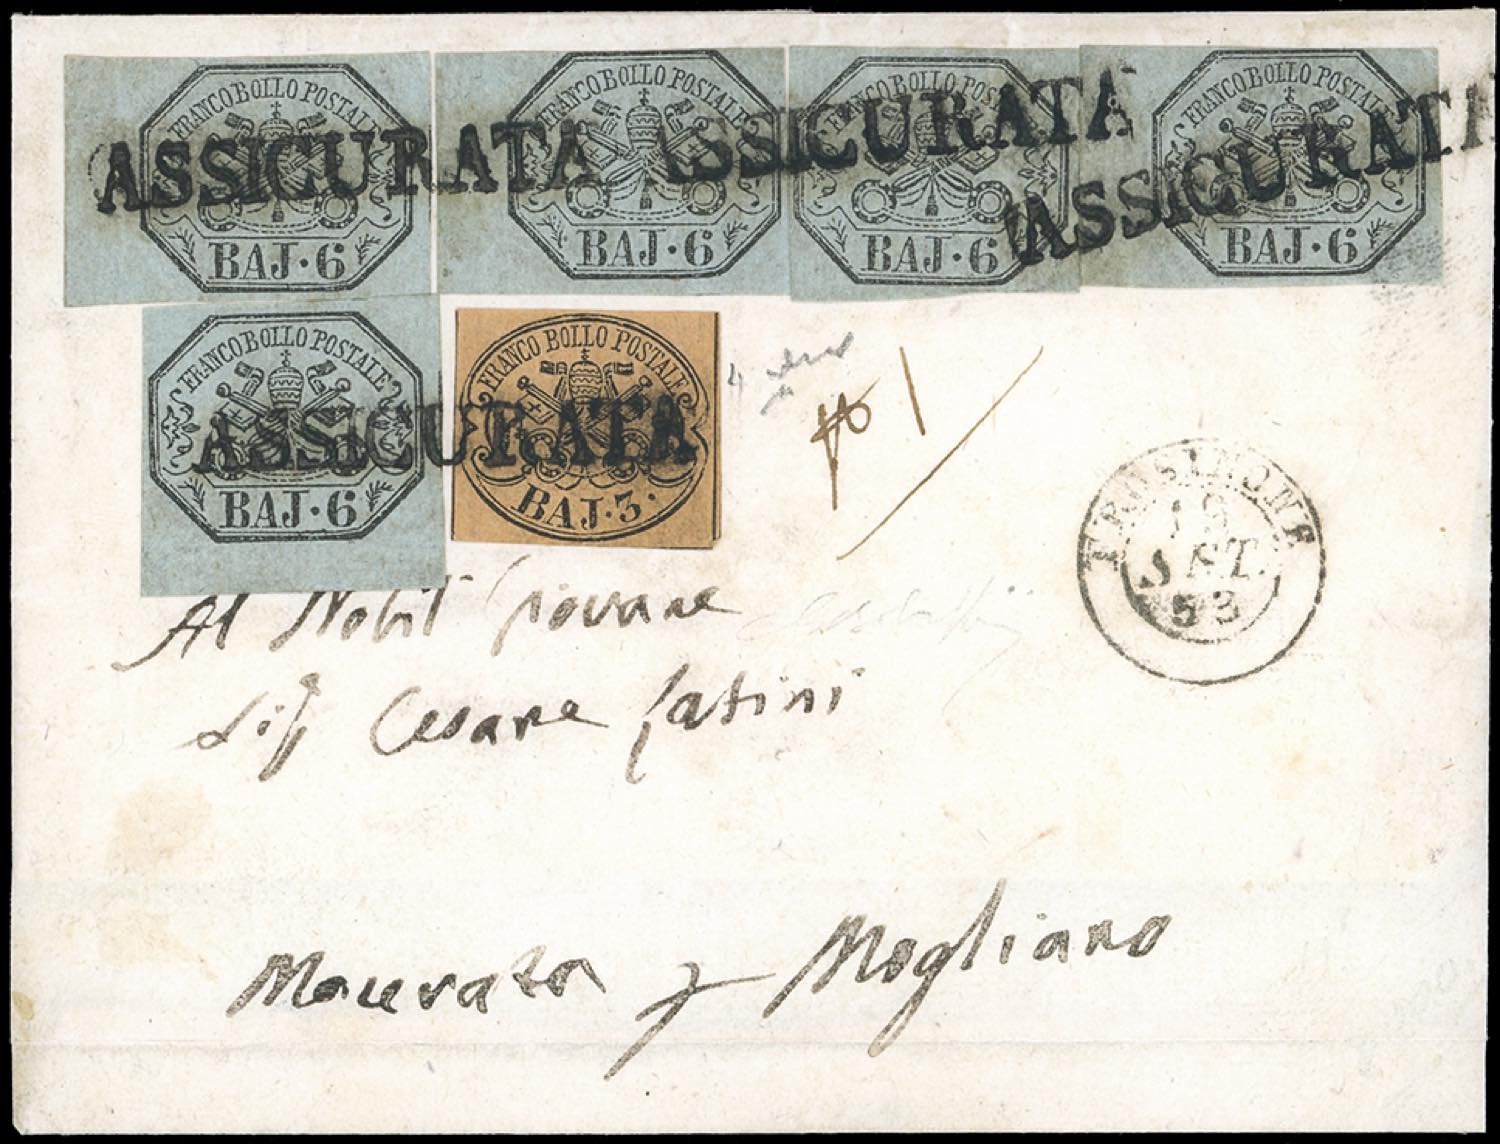 FRANCO BOLLO POSTALE
BAJ·6
FRANCO BOLLO POSTALE
BAJ·6
FRANCO BOLLO POSTALE
BAJ·6
FRANCO BOLLO POSTALE
BAJ·6
ASSICURATA ASSICURATA ASSICURATA
FRANCO BOLLO POSTALE
BAJ·6
FRANCO BOLLO POSTALE
BAJ·3·
ASSICURATA
1
FROSINONE
19
SET.
53
Al Nobil Giovane
Sig Cesare Latini
Macerata p Mogliano